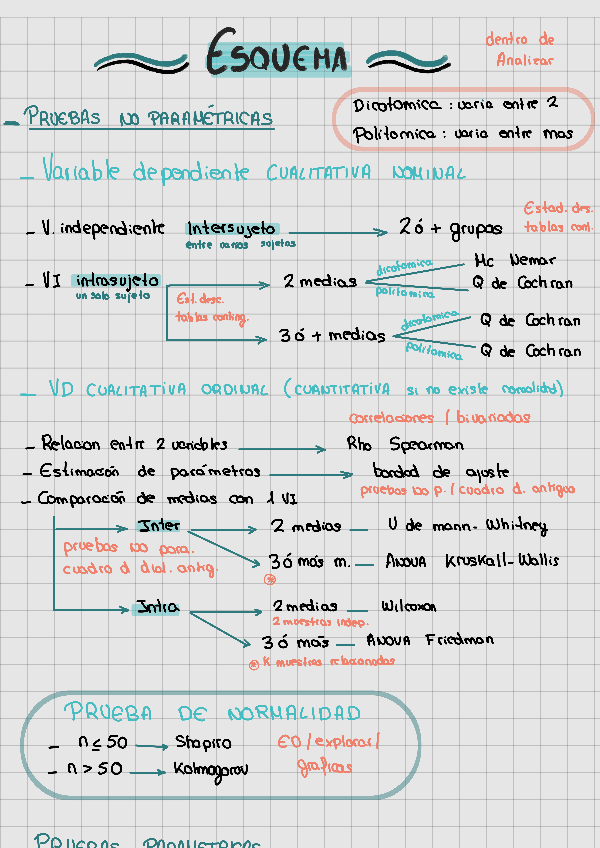 ESQUEMA
dentro de
Analizar
- PRUEBAS NO PARAMÉTRICAS
Dicotomica : varia entre 2
Politomica : varia entre mas
- Variable dependiente CUALITATIVA NOMINAL
- V. independiente Intersujeto → 2 ó + grupos
entre varios sujetos
Estad. des.
tablas cont.
- VI intrasujeto → 2 medias
un solo sujeto
dicotomica Mc Nemar
politomica Q de Cochran
Est. desc.
tablas conting.
3 ó + medias
dicotomica Q de Cochran
politomica Q de Cochran
- VD CUALITATIVA ORDINAL (CUANTITATIVA si no existe normalidad)
correlaciones / bivariadas
- Relacion entre 2 variables → Rho Spearman
- Estimación de parámetros → bondad de ajuste
pruebas no p. / cuadro d. antiguo
- Comparación de medias con 1 VI
Inter → 2 medias — U de mann-Whitney
pruebas no para.
cuadro d dial. antig.
3 ó más m. — ANOVA Kruskall-Wallis
Intra → 2 medias — Wilcoxon
2 muestras indep.
3 ó más — ANOVA Friedman
K muestras relacionadas
PRUEBA DE NORMALIDAD
- n ≤ 50 → Shapiro
- n > 50 → Kolmagorov
ED / explorar /
graficos
PRUEBAS PARAMETRICAS